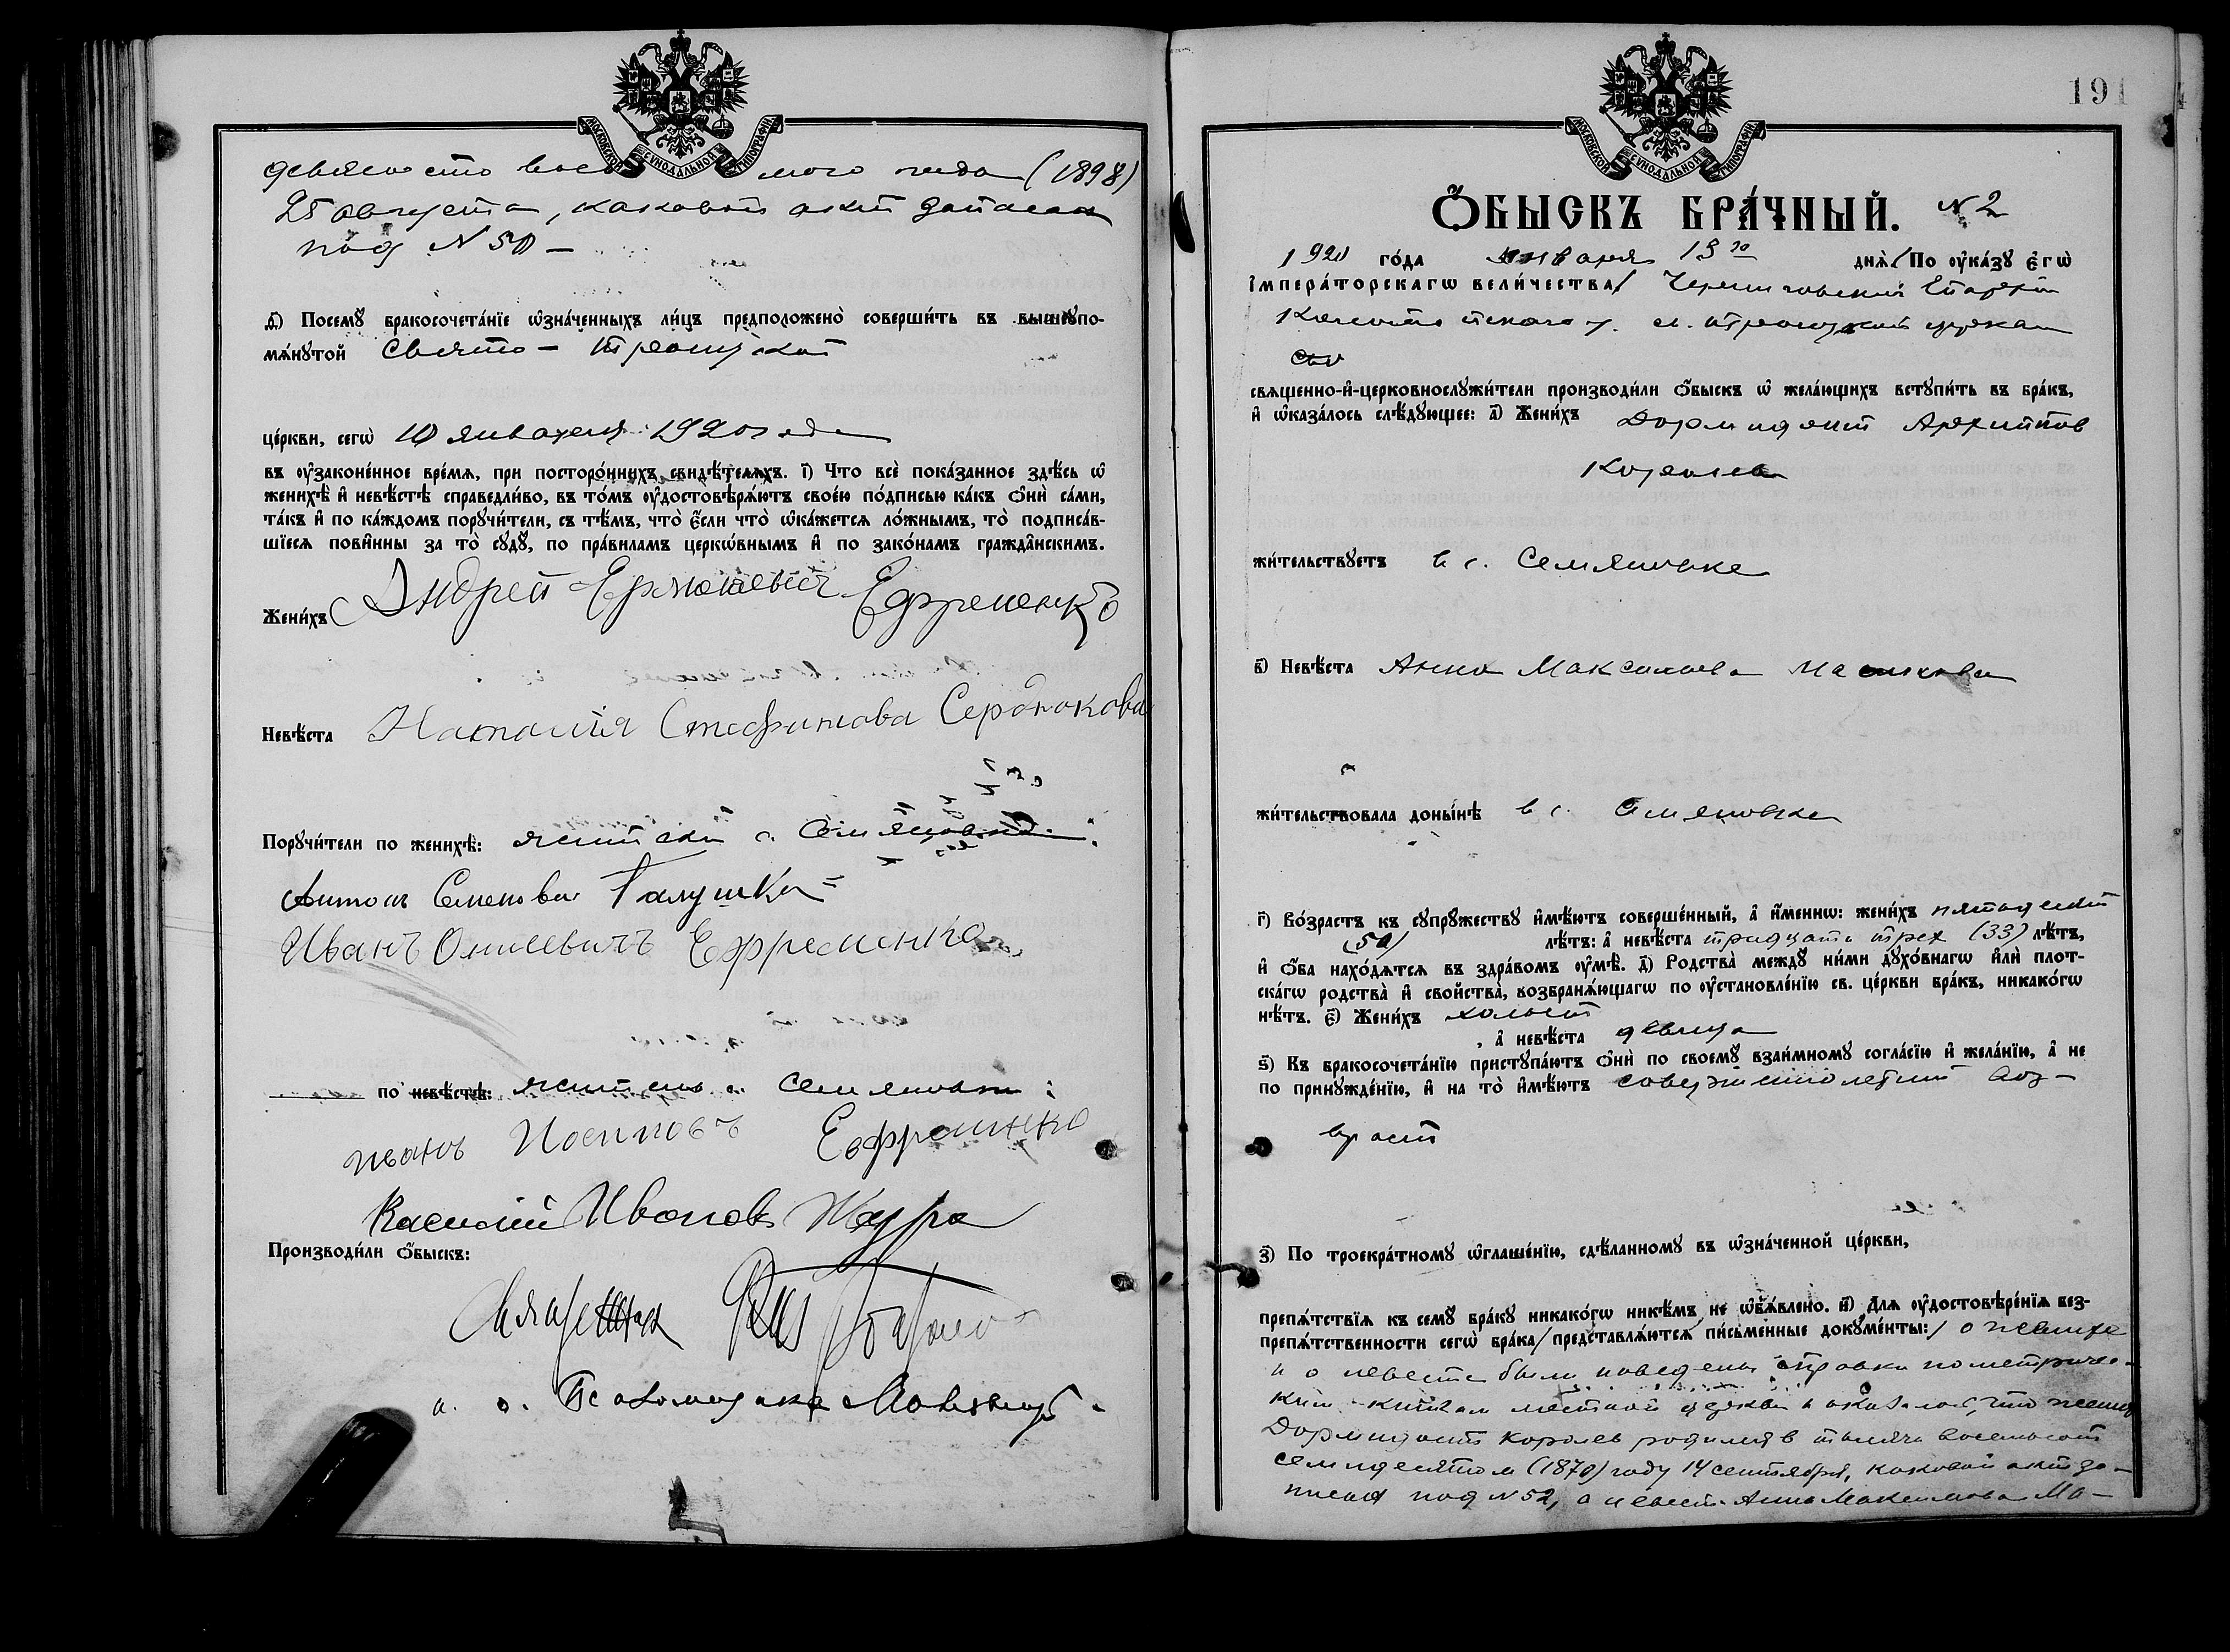 МОСКОВСКОЙ СѴНОДАЛЬНОЙ ТИПОГРАФІИ
девяносто вось мого года (1898)
25 августа, каковой акт записан
под N 50 —
д҃) Посемꙋ бракосочета́нїе ѡ҆зна́ченныхъ ли́цъ предположено̀ соверши́ть въ вышеꙋпо-
мѧ́нꙋтой Свято - Троицкой
це́ркви, сегѡ̀ 10 января 1920 года
въ ᲂу҆законе́нное вре́мѧ, при посторо́ннихъ свидѣ́телѧхъ. і҃) Что всѐ пока́занное здѣ́сь ѡ҆
женихѣ̀ и҆ невѣ́стѣ справедли́во, въ то́мъ ᲂу҆достовѣрѧ́ютъ свое́ю по́дписью ка́къ ѻ҆нѝ са́ми,
та́къ и҆ по ка́ждомъ порꙋчи́тели, съ тѣ́мъ, что̀ є҆́сли что̀ ѡ҆ка́жетсѧ ло́жнымъ, то̀ подписа́в-
шїесѧ пови́нны за то̀ сꙋдꙋ̀, по пра́вилам церкѡ́внымъ и҆ по зако́намъ гражда́нскимъ.
Жени́хъ Андрей Ермолаевич Ефременко
Невѣ́ста Наталія Стефанова Сердюкова
Порꙋчи́тели по женихѣ̀: жители с. Семяновки:
Антон Семенович Галушка
Иванъ Ефременко
по невѣ́стѣ: жители с. Семяновки:
иванъ Иосиповъ Ефременко
Василий Иванов Журо
Производи́ли ѻ҆́быскъ:
Священник
и. о. Псаломщика
191
МОСКОВСКОЙ СѴНОДАЛЬНОЙ ТИПОГРАФІИ
Ѻ҆́БЫСКЪ БРА́ЧНЫЙ. N 2
1920 го́да января 13го днѧ̀. / По ᲂу҆ка́зꙋ є҆гѡ̀
і҆мпера́торскагѡ вели́чества / Черниговской Епархии
Конотопского у. с. Троицкой церкви
свѧщенно-и҆-церковнослꙋжи́тели производи́ли ѻ҆́быскъ ѡ҆ жела́ющихъ встꙋпи́ть въ бра́къ,
и҆ ѡ҆каза́лось слѣ́дꙋющее: а҃) Жени́хъ Дормидонт Архипов
Королев
жи́тельствꙋетъ в с. Семяновке
в҃) Невѣ́ста Анна Максимова
жи́тельствовала доны́нѣ в с. Семяновке
г҃) Во́зрастъ къ сꙋпрꙋ́жествꙋ и҆мѣ́ютъ соверше́нный, а҆ и҆́меннѡ: жени́хъ пятидесят
(50) лѣ́тъ: а҆ невѣ́ста тридцати трех (33) лѣ́тъ,
и҆ ѻ҆́ба нахо́дѧтсѧ въ здра́вомъ ᲂу҆мѣ̀. д҃) Родства̀ междꙋ̀ ни́ми дꙋхо́внагѡ и҆лѝ плот-
ска́гѡ родства̀ и҆ свойства̀, возбранѧ́ющагѡ по ᲂу҆становле́нїю св. це́ркви бра́къ, никако́гѡ
нѣ́тъ. є҃) Жени́хъ холост
, а҆ невѣ́ста девица
ѕ҃) Къ бракосочета́нїю пристꙋпа́ютъ ѻ҆нѝ по своемꙋ̀ взаи́мномꙋ согла́сїю и҆ жела́нїю, а҆ не
по принꙋжде́нїю, и҆ на то̀ и҆мѣ́ютъ совершеннолетний воз-
враст
з҃) По троекра́тномꙋ ѡ҆глаше́нїю, сдѣ́ланномꙋ въ ѡ҆зна́ченной це́ркви,
препѧ́тствїѧ къ семꙋ̀ бра́кꙋ никако́гѡ никѣ́мъ не ѡ҆б̾ѧ́влено. и҃) Длѧ ᲂу҆достовѣре́нїѧ без-
препѧ́тственности сегѡ̀ бра́ка / представлѧ́ютсѧ пи́сьменные докꙋме́нты: / о женихе
и о невесте были наведены справки по метричес-
ким книгам местной церкви и оказалось, что жених
Дормидонт Королев родился в тысяча восемьсот
семидесятом (1870) году 14 сентября, каковой акт за-
писан под N 52, а невеста Анна Максимова Ма-